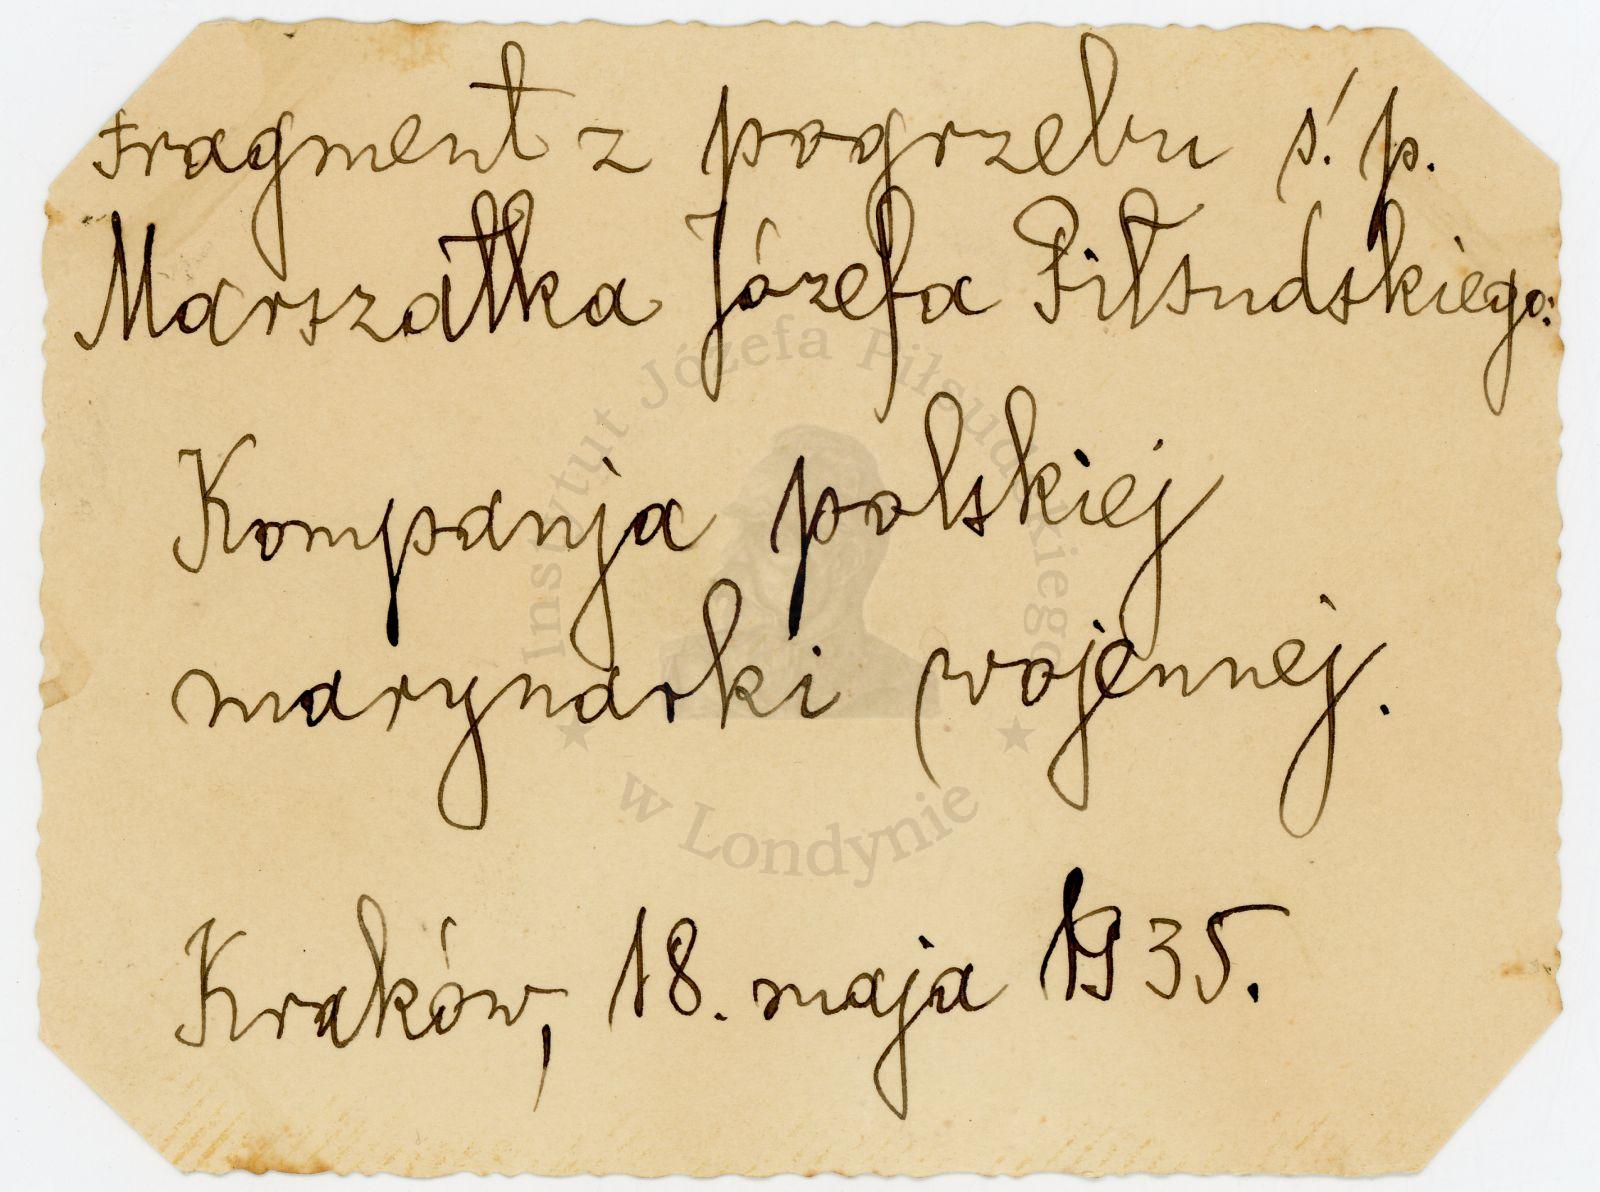 Fragment z pogrzebu ś.p.
Marszałka Józefa Piłsudskiego:
Kompanja polskiej
marynarki wojennej.
Kraków, 18. maja 1935.
Instytut Józefa Piłsudskiego
w Londynie